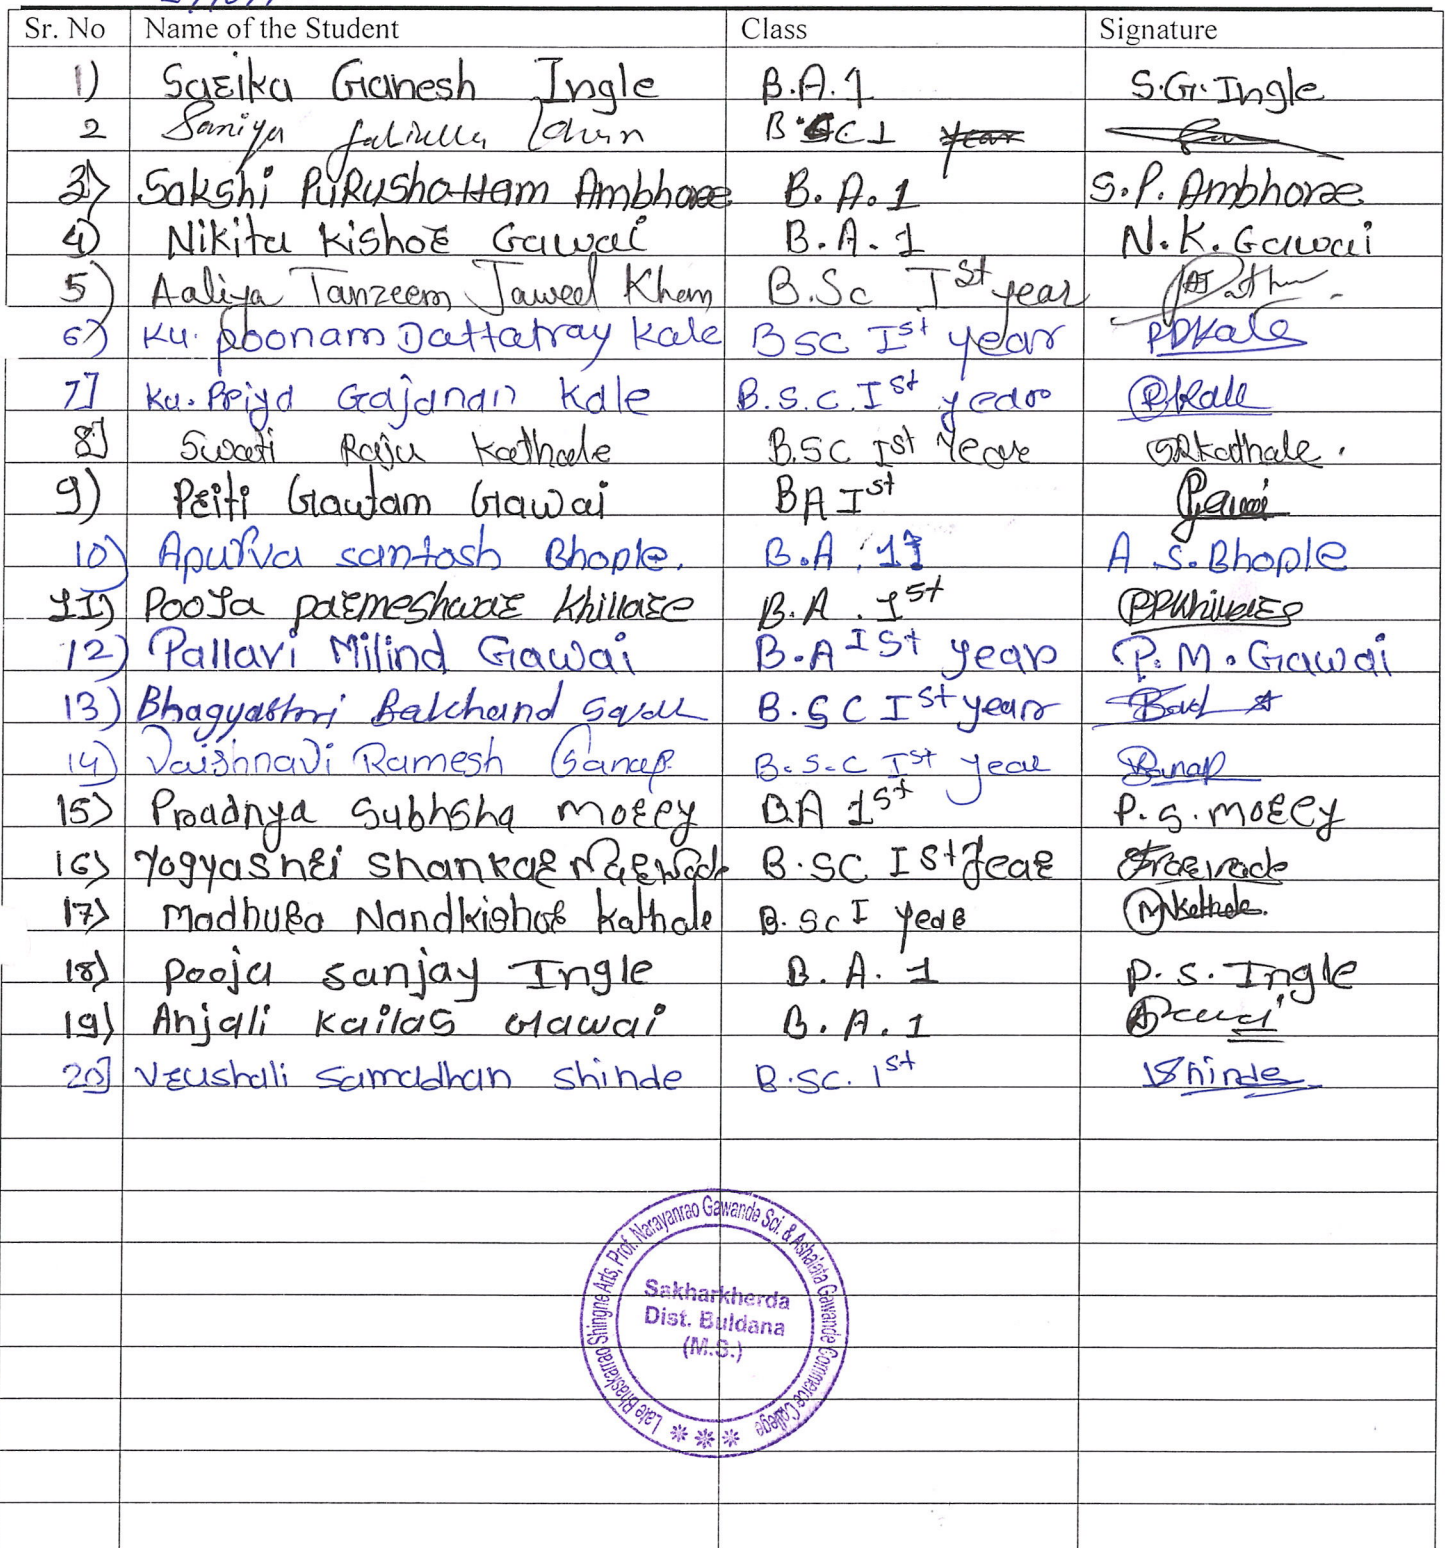 Sr. No Name of the Student Class Signature
1) Sarika Ganesh Ingle B.A.1 S.G.Ingle
2 Saniya B.SC1 year
3) Sakshi Purushottam Ambhore B.A.1 S.P. Ambhore
4) Nikita Kishor Gawai B.A.1 N.K. Gawai
5) Aaliya Tanzeem Jaweed Khan B.Sc Ist year
6) Ku. Poonam Dattatray Kale BSC Ist year PDKale
7] Ku. Priya Gajanan Kale B.S.C. Ist year PKale
8] Swati Raju Kathale B.SC Ist Year SRKathale.
9) Priti Gautam Gawai BA Ist PGawai
10) Apurva santosh Bhople. B.A. 1 A S. Bhople
11) Pooja parmeshwar Khillare B.A. 1st PPKhillare
12) Pallavi Milind Gawai B.A Ist year P.M. Gawai
13) Bhagyashri Balchand B.SC Ist year
14) Vaishnavi Ramesh Sanap B.S.C Ist year Sanap
15) Pradnya Subhsha morey B.A 1st P.S. morey
16) Yogyashri Shankar B.SC ISt year
17) Madhura Nandkishor Kathale B.Sc I year MNKathale.
18) Pooja sanjay Ingle B.A. 1 P.S. Ingle
19) Anjali Kailas Gawai B.A.1
20] Vrushali Samadhan Shinde B.SC. 1st VShinde
Late Bhaskarrao Shingne Arts, Prof. Narayanrao Gawande Sci. & Ashalata Gawande Commerce College
Sakharkherda
Dist. Buldana
(M.S.)